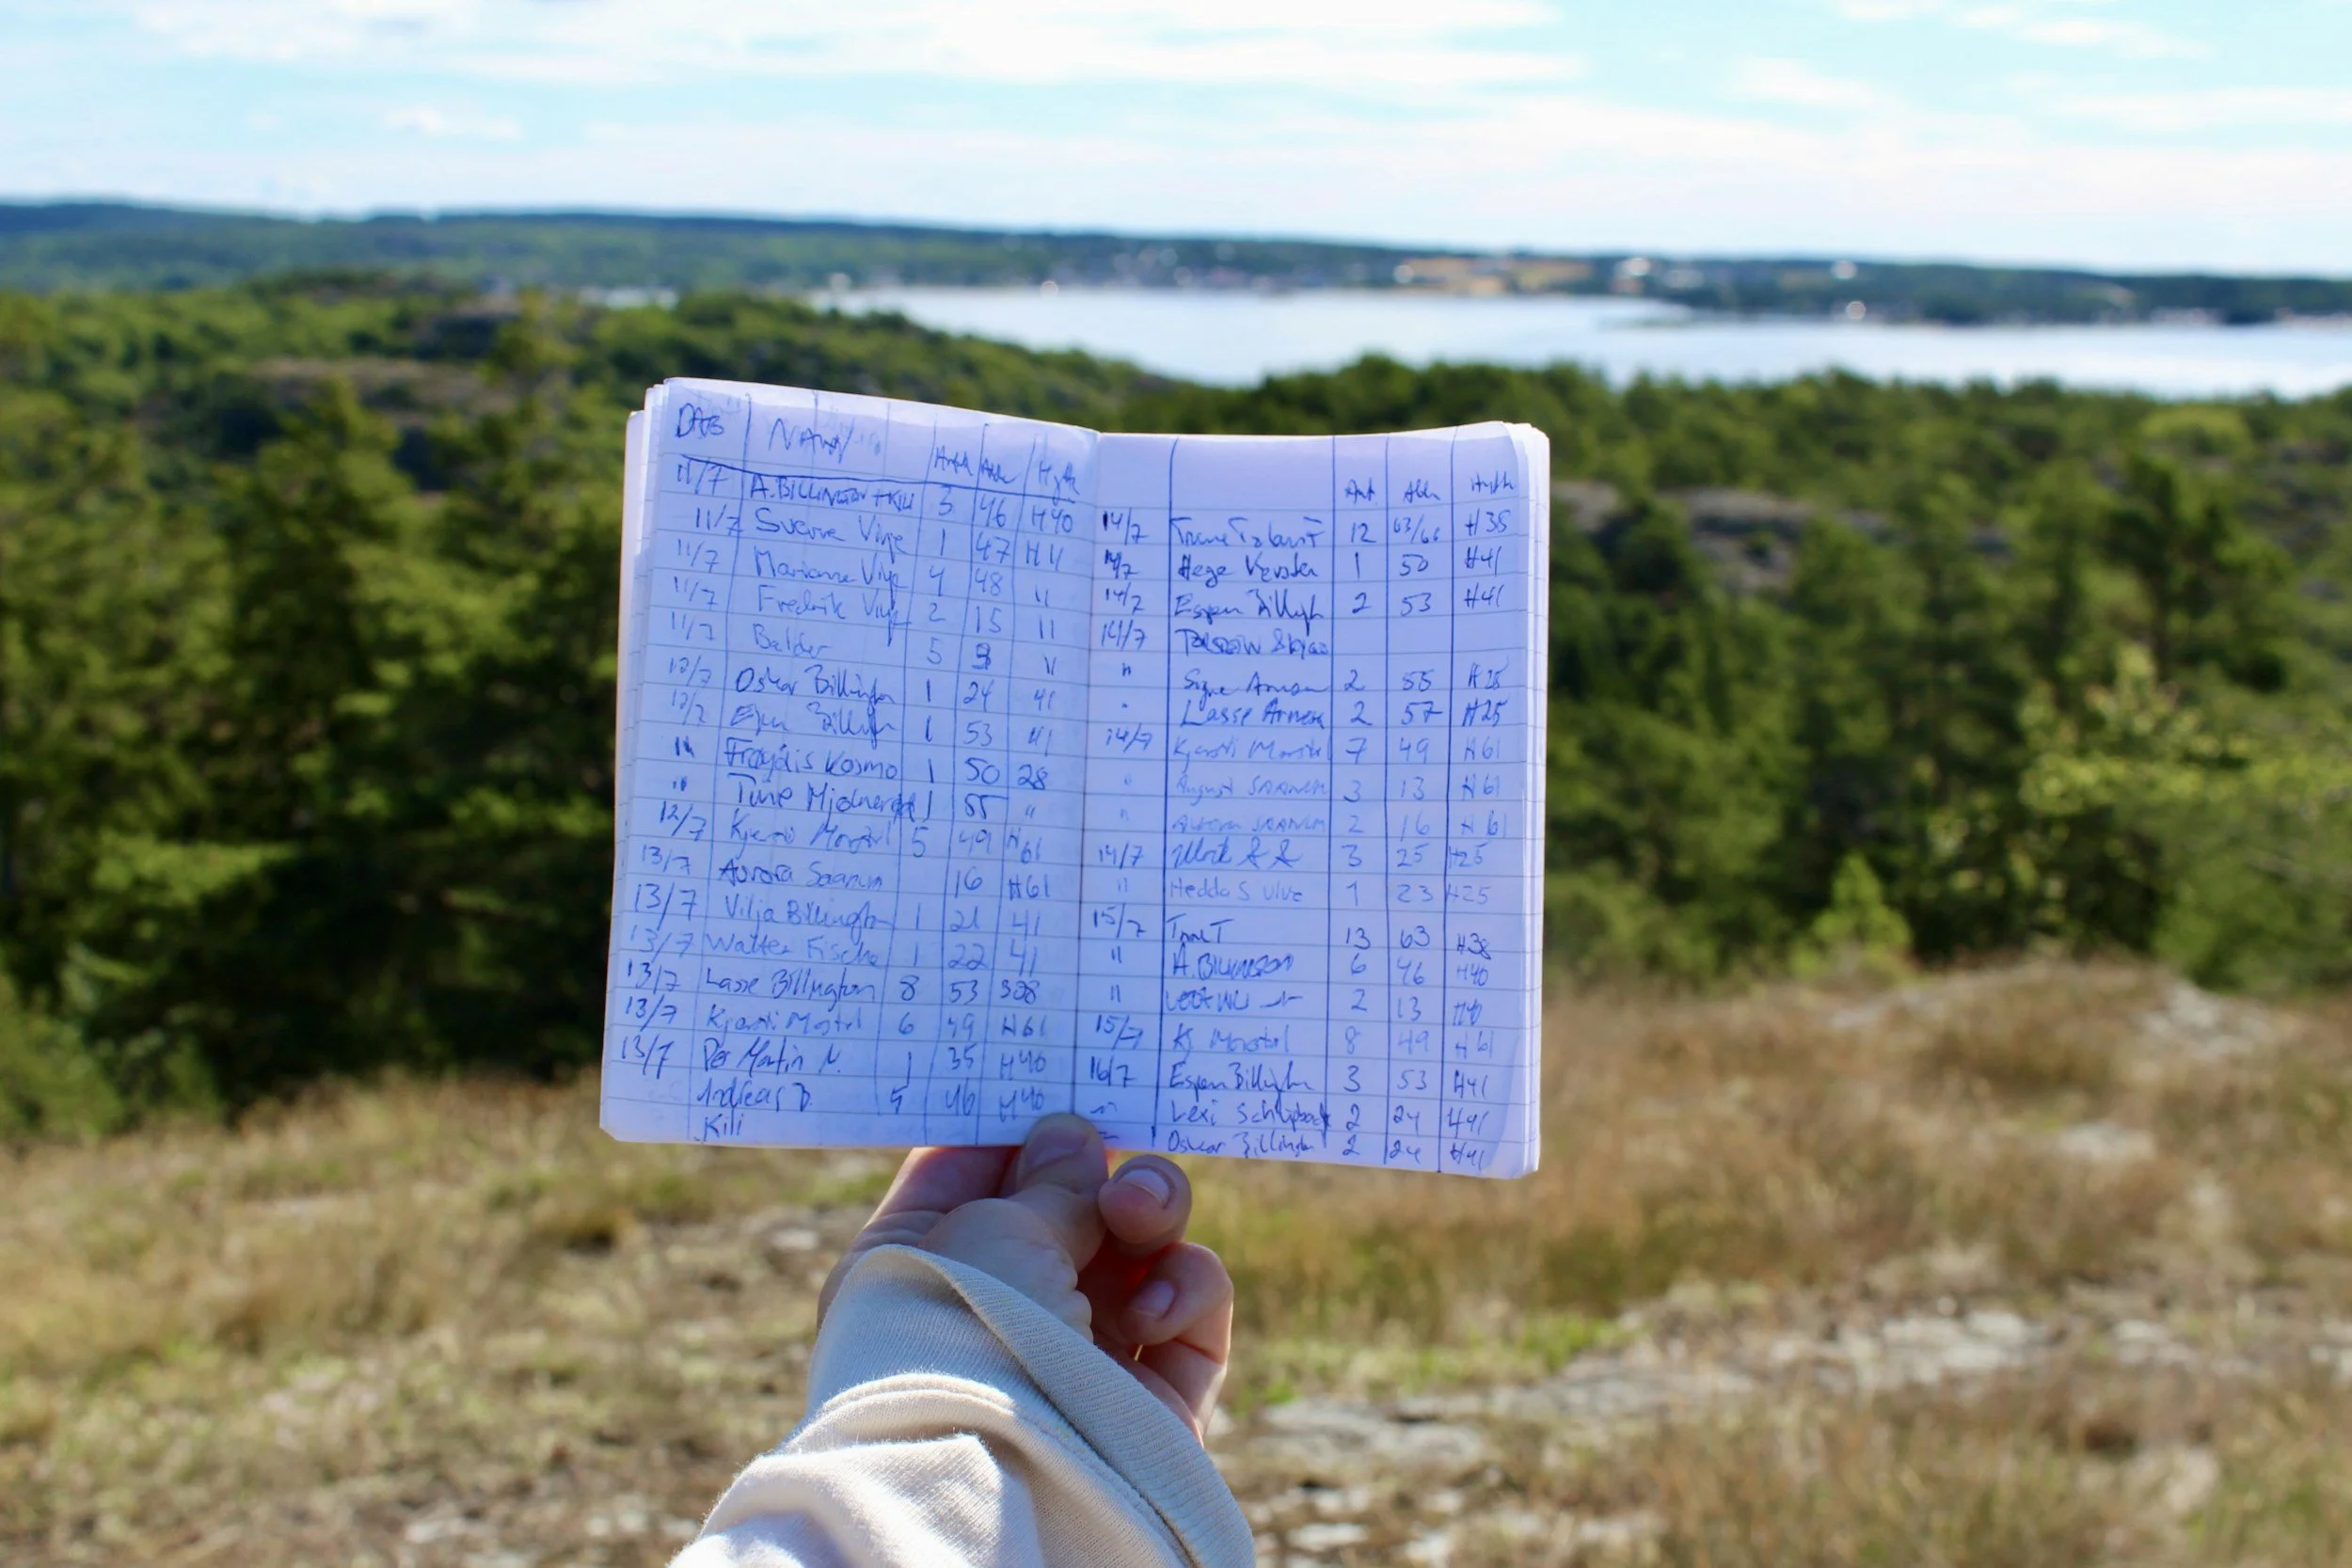 DATO NAVN Antall Alder Hytte
11/7 A. BILLINGTON + KILI 3 46 H40
11/7 Sverre Vige 1 47 H41
11/7 Marianne Vige 4 48 "
11/7 Fredrik Vige 2 15 11
11/7 Balder 5 "
12/7 Oskar Billington 1 24 41
12/7 Espen Billington 1 53 41
" Frøydis Kosmo 1 50 28
" Tune 1 55 "
12/7 Kjersti 5 49 H61
13/7 Aurora Saanum 16 H61
13/7 Vilja Billington 1 21 41
13/7 Walter Fische 1 22 41
13/7 Lasse Billington 8 53
13/7 Kjersti 6 49 H61
13/7 Per Martin N. 1 35 H40
Andreas B. 5 46 H40
Kili
Ant. Alder Hytte
14/7 12 63/66 H35
14/7 Hege 1 50 H41
14/7 Espen Billington 2 53 H41
14/7
" Signe 2 55 H25
" Lasse 2 57 H25
14/7 Kjersti 7 49 H61
" August SAANUM 3 13 H61
" Aurora SAANUM 2 16 H61
14/7 3 25 H25
" Hedda S 1 23 H25
15/7 13 63 H38
" A. BILLINGTON 6 46 H40
" 2 13 H40
15/7 Kj 8 49 H61
16/7 Espen Billington 3 53 H41
Lexi 2 24 H41
Oskar Billington 2 24 H41